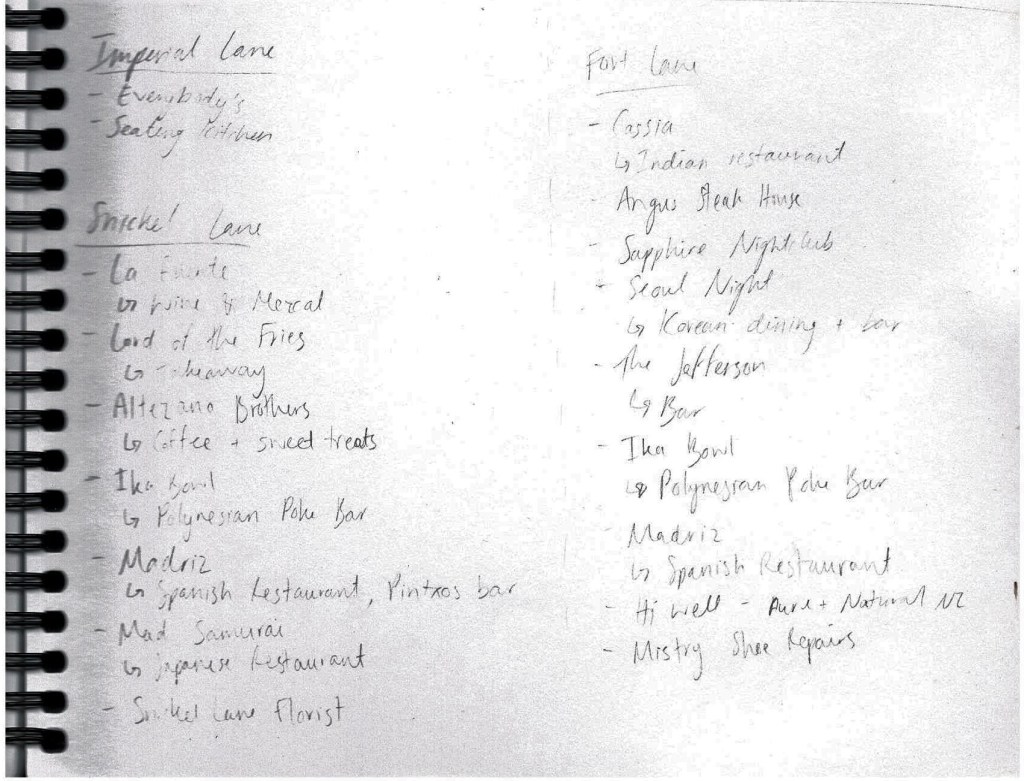 Imperial Lane
- Everybody's
- Seating Kitchen
Snickel Lane
- La Fuente
↳ Wine & Mezcal
- Lord of the Fries
↳ Takeaway
- Altezano Brothers
↳ Coffee + sweet treats
- Ika Bowl
↳ Polynesian Poke Bar
- Madriz
↳ Spanish Restaurant, Pintxos bar
- Mad Samurai
↳ Japanese Restaurant
- Snickel Lane Florist
Fort Lane
- Cassia
↳ Indian restaurant
- Angus Steak House
- Sapphire Nightclub
- Seoul Night
↳ Korean dining + bar
- The Jefferson
↳ Bar
- Ika Bowl
↳ Polynesian Poke Bar
- Madriz
↳ Spanish Restaurant
- Hi well - Pure + Natural NZ
- Mistry Shoe Repairs